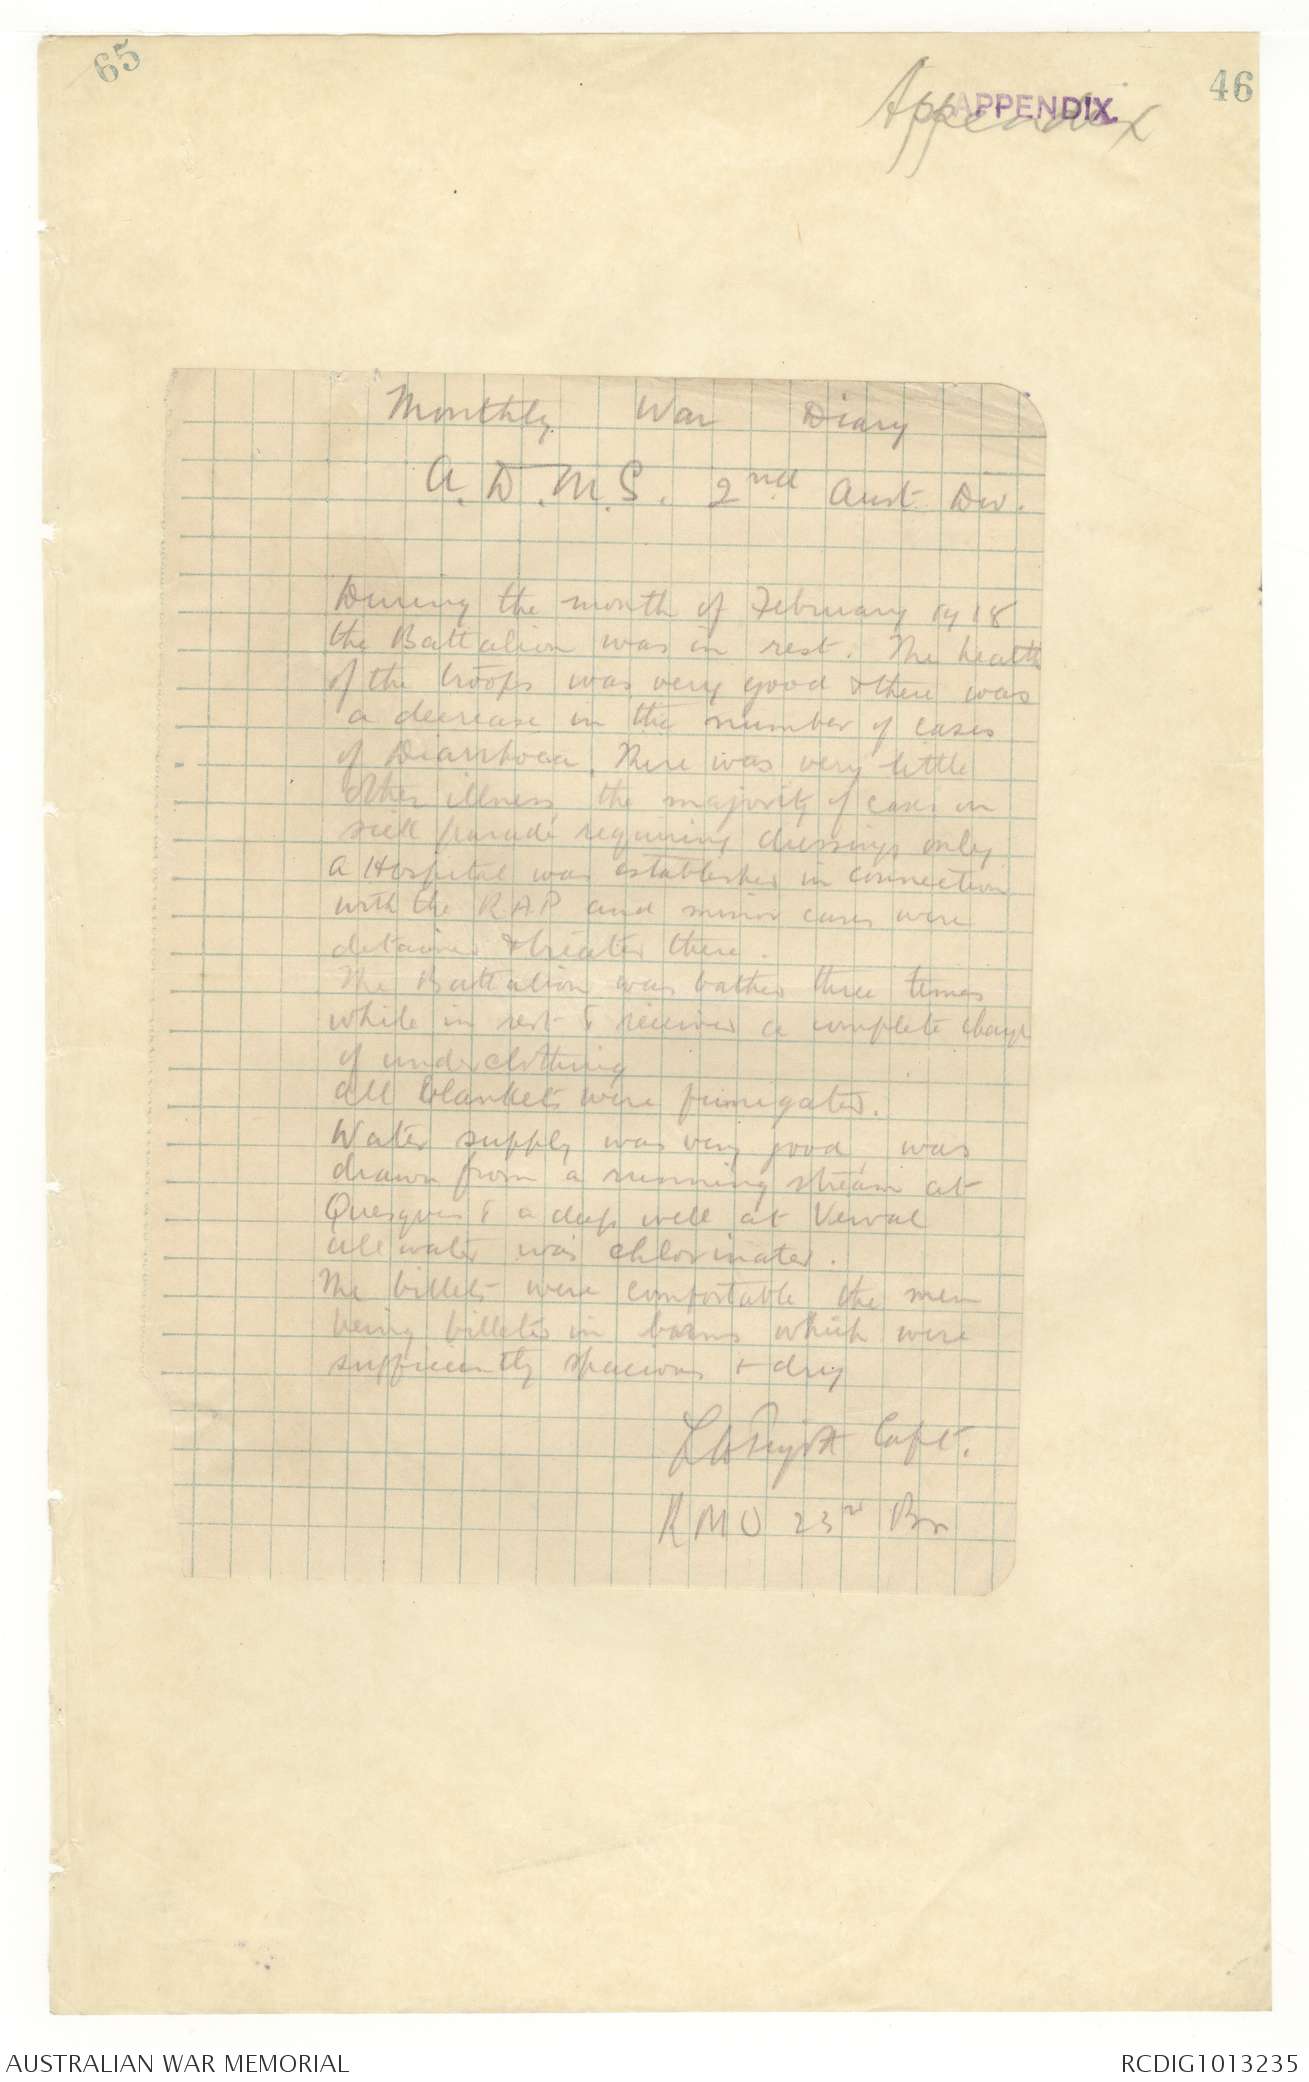 65
46
Appendix
APPENDIX.
Monthly War Diary
A.D.M.S. 2nd Aust. Div.
During the month of February 1918
the Battalion was in rest. The health
of the troops was very good & there was
a decrease in the number of cases
of Diarrhoea. There was very little
other illness, the majority of cases on
sick parade requiring dressings only.
A Hospital was established in connection
with the R A P and minor cases were
detained & treated there.
The Battalion was bathed three times
while in rest & received a complete change
of underclothing
All blankets were fumigated.
Water supply was very good, was
drawn from a running stream at
Quesques & a deep well at Verval
All water was chlorinated.
The billets were comfortable the men
being billeted in barns which were
sufficiently spacious & dry
Capt.
R M O 23rd Bn
AUSTRALIAN WAR MEMORIAL
RCDIG1013235